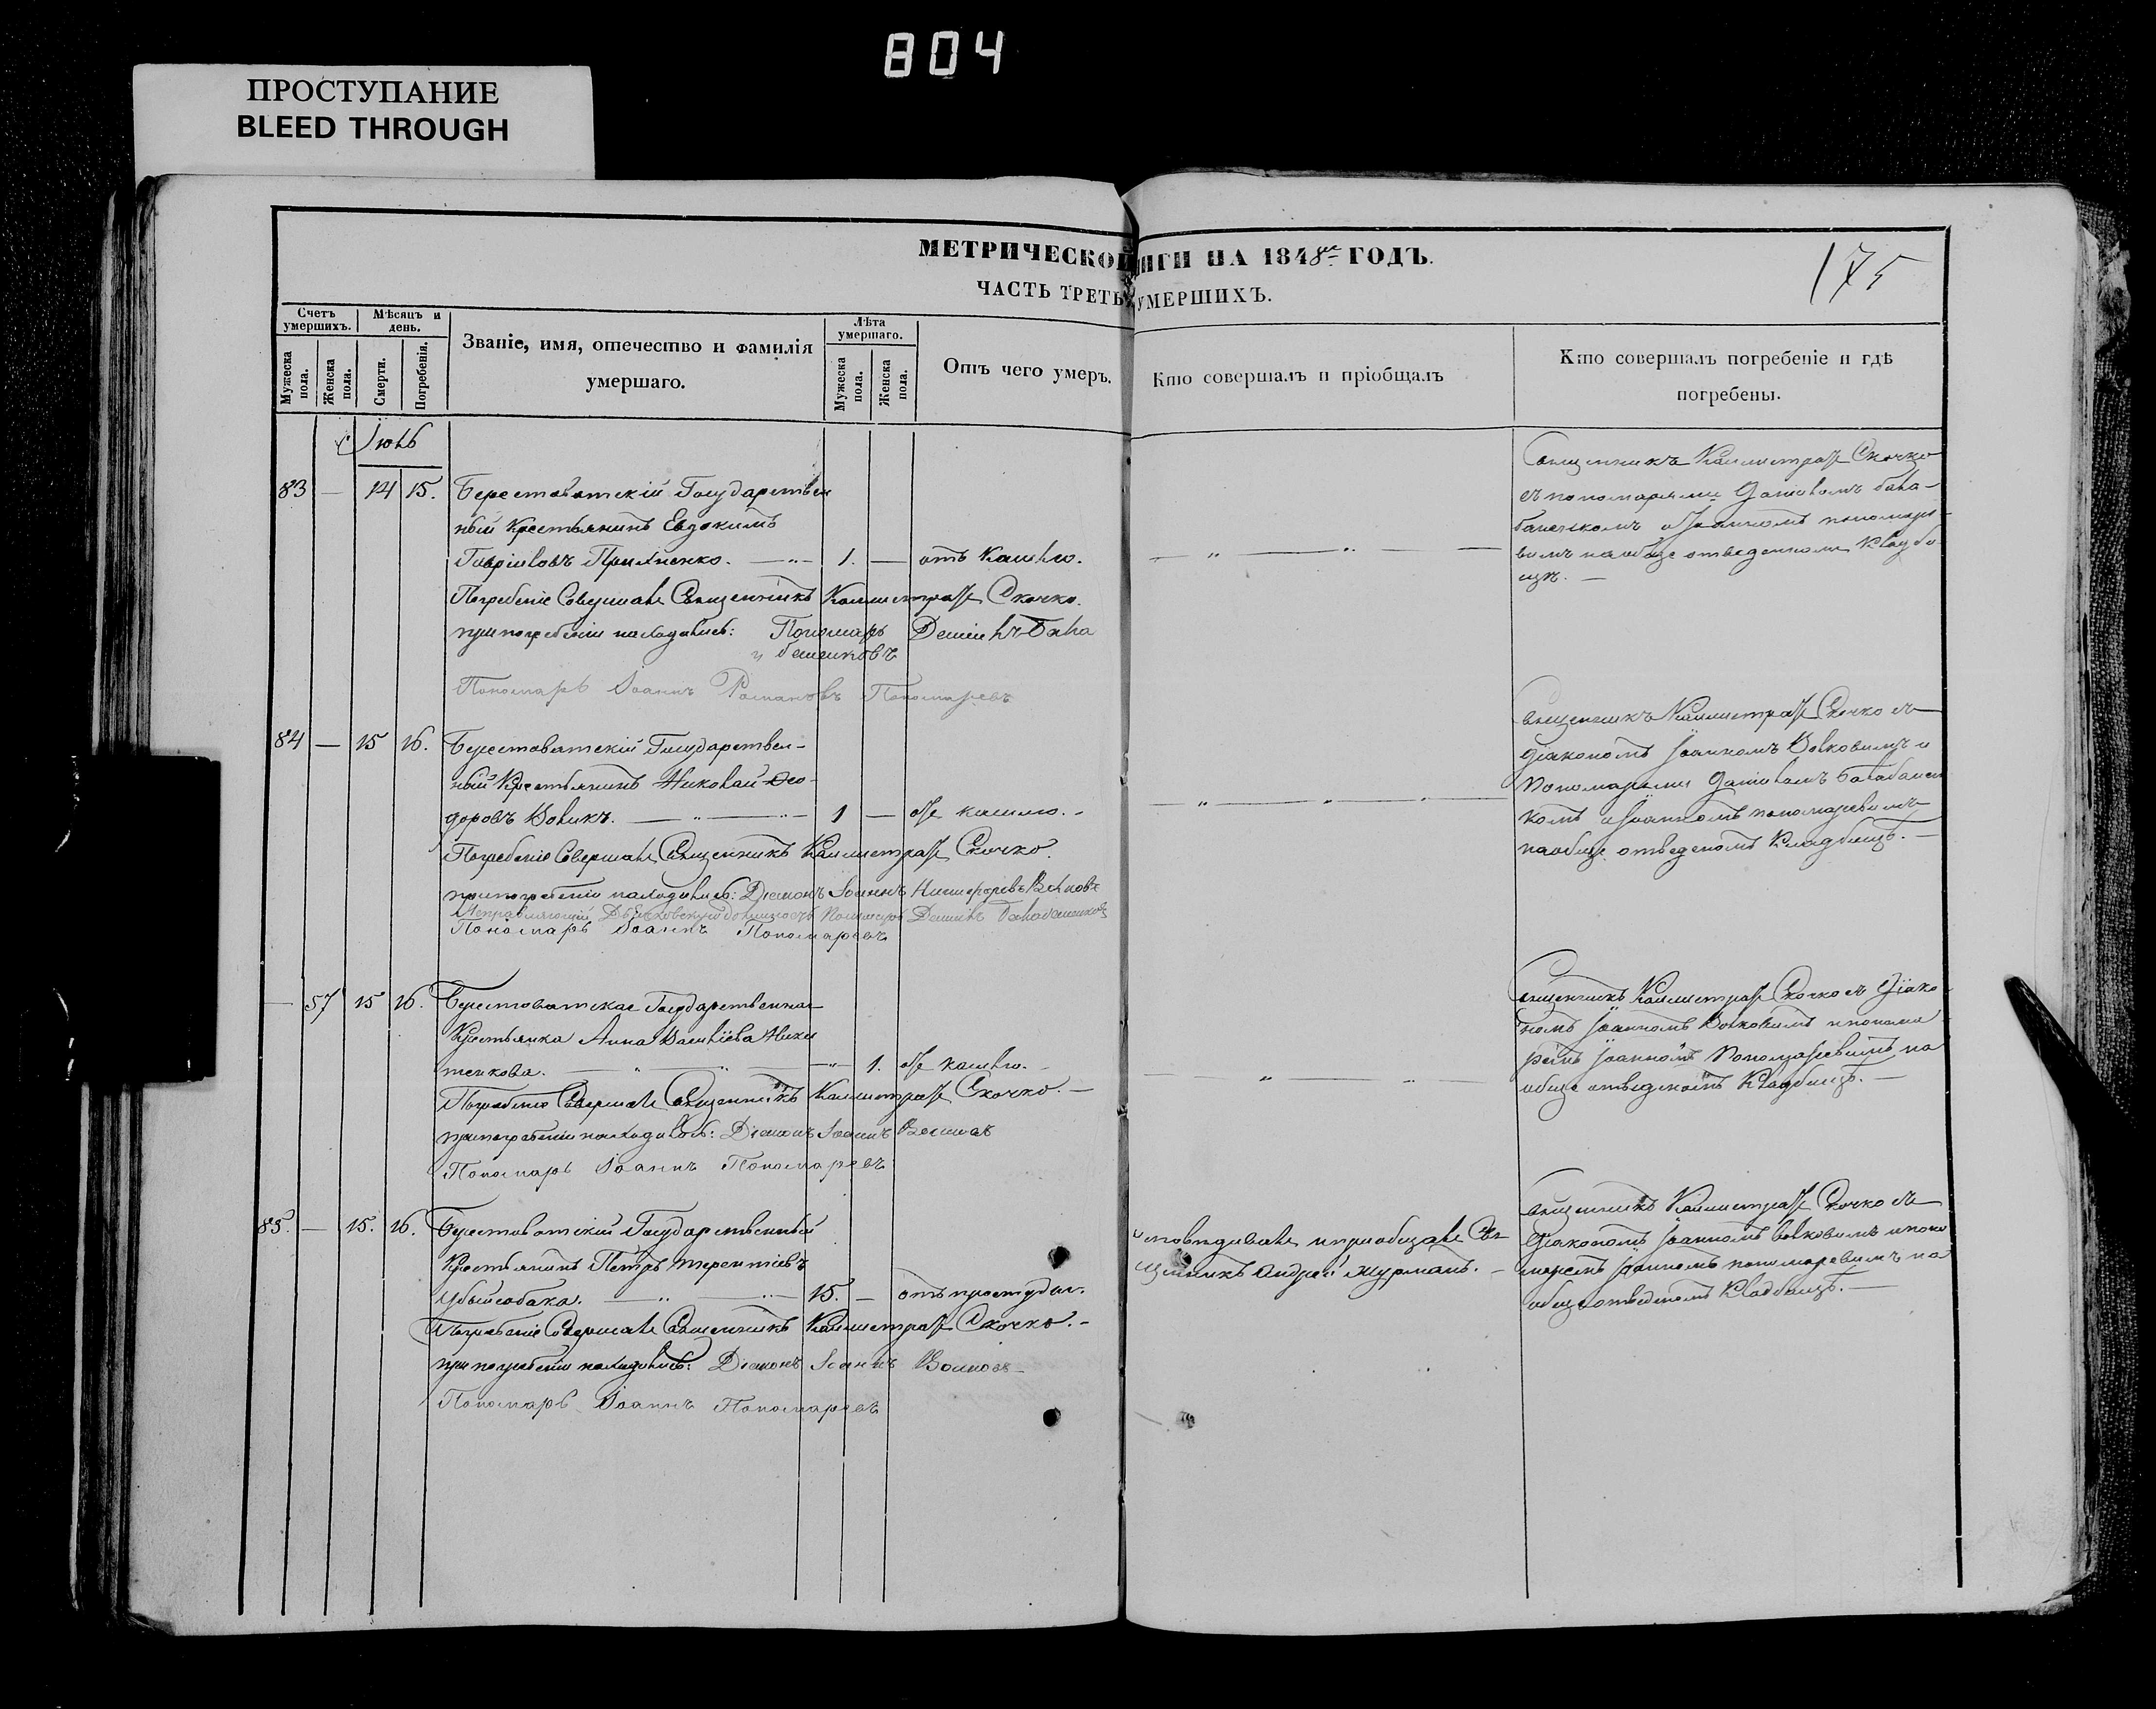 804
ПРОСТУПАНИЕ
BLEED THROUGH
МЕТРИЧЕСКОЙ
ИГИ НА 1848й ГОДЪ.
175
ЧАСТЬ ТРЕТЬ
УМЕРШИХЪ.
Счетъ умершихъ.
Мужеска пола.
Женска пола.
Мѣсяцъ и день.
Смерти.
Погребенія.
Званіе, имя, отечество и фамилія
умершаго.
Лѣта умершаго.
Мужеска пола.
Женска пола.
Отъ чего умеръ.
Кто совершалъ и пріобщалъ
Кто совершалъ погребеніе и гдѣ
погребены.
Іюнь
83 — 14 15. Берестоватскій Государствен
ный Крестьянинъ Евдокимъ
Гавріиловъ — 1. — отъ кашлю.
Погребеніе Совершалъ Священникъ Каллистратъ Скочко.
при погребеніи находились: Пономарь Даніилъ Бала
банековъ
Пономарь Іоаннъ Романовъ Пономаревъ
Священникъ Каллистратъ Скочко
съ пономарями Даніиломъ Бала-
и Іоанномъ пономаре-
вымъ на обще отведенномъ кладби-
щѣ. —
84 — 15 16. Берестоватскій Государствен-
ный Крестьянинъ Николай Ѳео-
доровъ Воликъ. — 1 — отъ кашлю. -
Погребеніе Совершалъ Священникъ Каллистратъ Скочко.
при погребеніи находились: Діаконъ Іоаннъ Волковъ
Исправляющій Дьячковскую должность Пономарь Даніилъ
Пономарь Іоаннъ Пономаревъ
Священникъ Каллистратъ Скочко съ
діакономъ Іоанномъ Волковымъ и
Пономарями Даніиломъ
комъ и Іоанномъ пономаревымъ
на обще отведеномъ Кладбищѣ. —
— 57 15 16. Берестоватская Государственная
Крестьянка Анна Василіева Ники
тенкова. — 1. отъ кашлю. -
Погребеніе Совершалъ Священникъ Каллистратъ Скочко. —
при погребеніи находились: Діаконъ Іоаннъ Волковъ
Пономарь Іоаннъ Пономаревъ
Священникъ Каллистратъ Скочко съ Діако
номъ Іоанномъ Волковымъ и понома
ремъ Іоанномъ Пономаревымъ на
обще отведеномъ Кладбищѣ. —
85. — 15. 16. Берестоватскій Государственный
Крестьянинъ Петръ Терентіевъ
Убыйсобака. — 15. — отъ простуды.
Погребеніе Совершалъ Священникъ Каллистратъ Скочко. -
при погребеніи находились: Діаконъ Іоаннъ Волковъ
Пономарь Іоаннъ Пономаревъ
исповѣдывалъ и приобщалъ Свя
щенникъ Андрей Журманъ. -
Священникъ Каллистратъ Скочко съ
Діакономъ Іоанномъ Волковымъ и поно
маремъ Іоанномъ пономаревымъ на
обще отведеномъ Кладбищѣ. —